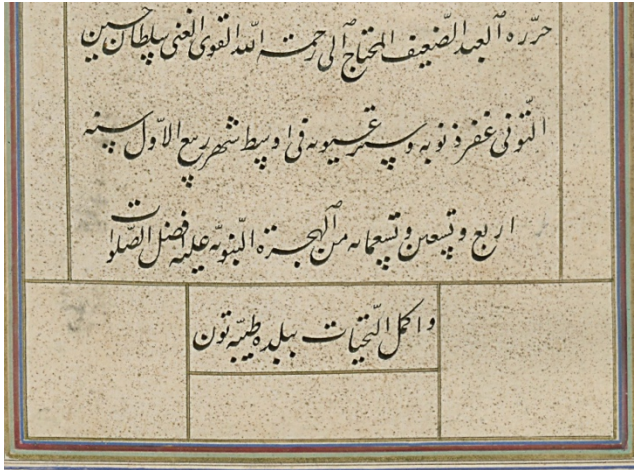 حرّره العبد الضّعیف المحتاج الی رحمة اللّه القوی الغنی سلطان حسین
التّونی غفر ذنوبه و ستر عیوبه فی اوسط شهر ربیع الاوّل سنه
اربع و تسعین و تسعمایه من الهجرة النّبویّه علیه افضل الصّلوات
و اکمل التّحیّات ببلده طیّبه تون